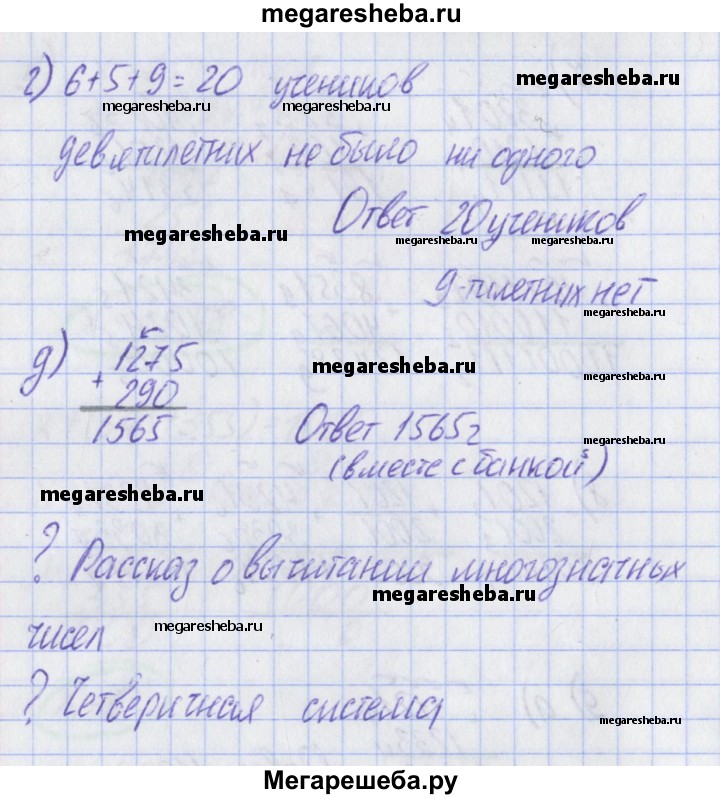 megaresheba.ru
г) 6+5+9=20 учеников
megaresheba.ru
megaresheba.ru megaresheba.ru megaresheba.ru
девятилетних не было ни одного
Ответ 20 учеников
megaresheba.ru megaresheba.ru megaresheba.ru
9-тилетних нет
megaresheba.ru
д) 1275
+ 290
1565
megaresheba.ru
Ответ 1565г
megaresheba.ru
(вместе с банкой)
megaresheba.ru
? Рассказ о вычитании многозначных
megaresheba.ru
чисел
megaresheba.ru
? Четверичная система
megaresheba.ru
Мегарешеба.ру